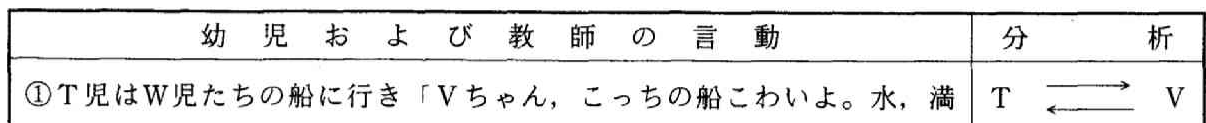 幼児および教師の言動 分析
①T児はW児たちの船に行き「Vちゃん，こっちの船こわいよ。水，満 T ⇄ V